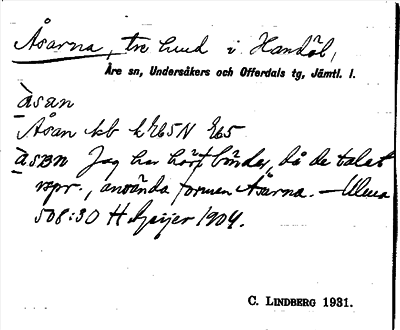 Åsarna, tre hmd i Handöl,
Åre sn, Undersåkers och Offerdals tg, Jämtl. l.
àsan
Åsan kb
àsɒn Jag har hört bönder, då de talat
rspr., använda formen Åsarna. — Ulma
508:30 H Geijer 1904.
C. LINDBERG 1931.